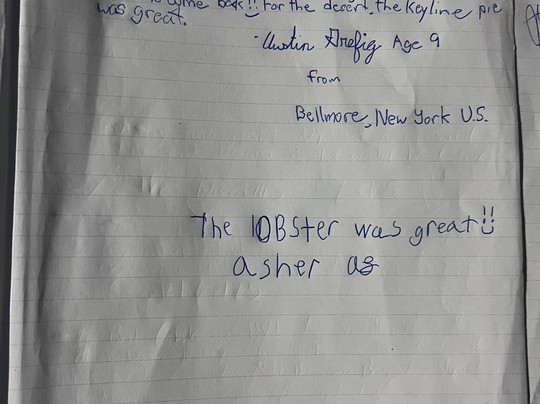 come back!! For the desert, the Keyline pie
was great.
-Austin Grefig Age 9
from
Bellmore, New York U.S.
The lOBSter was great!!
asher as